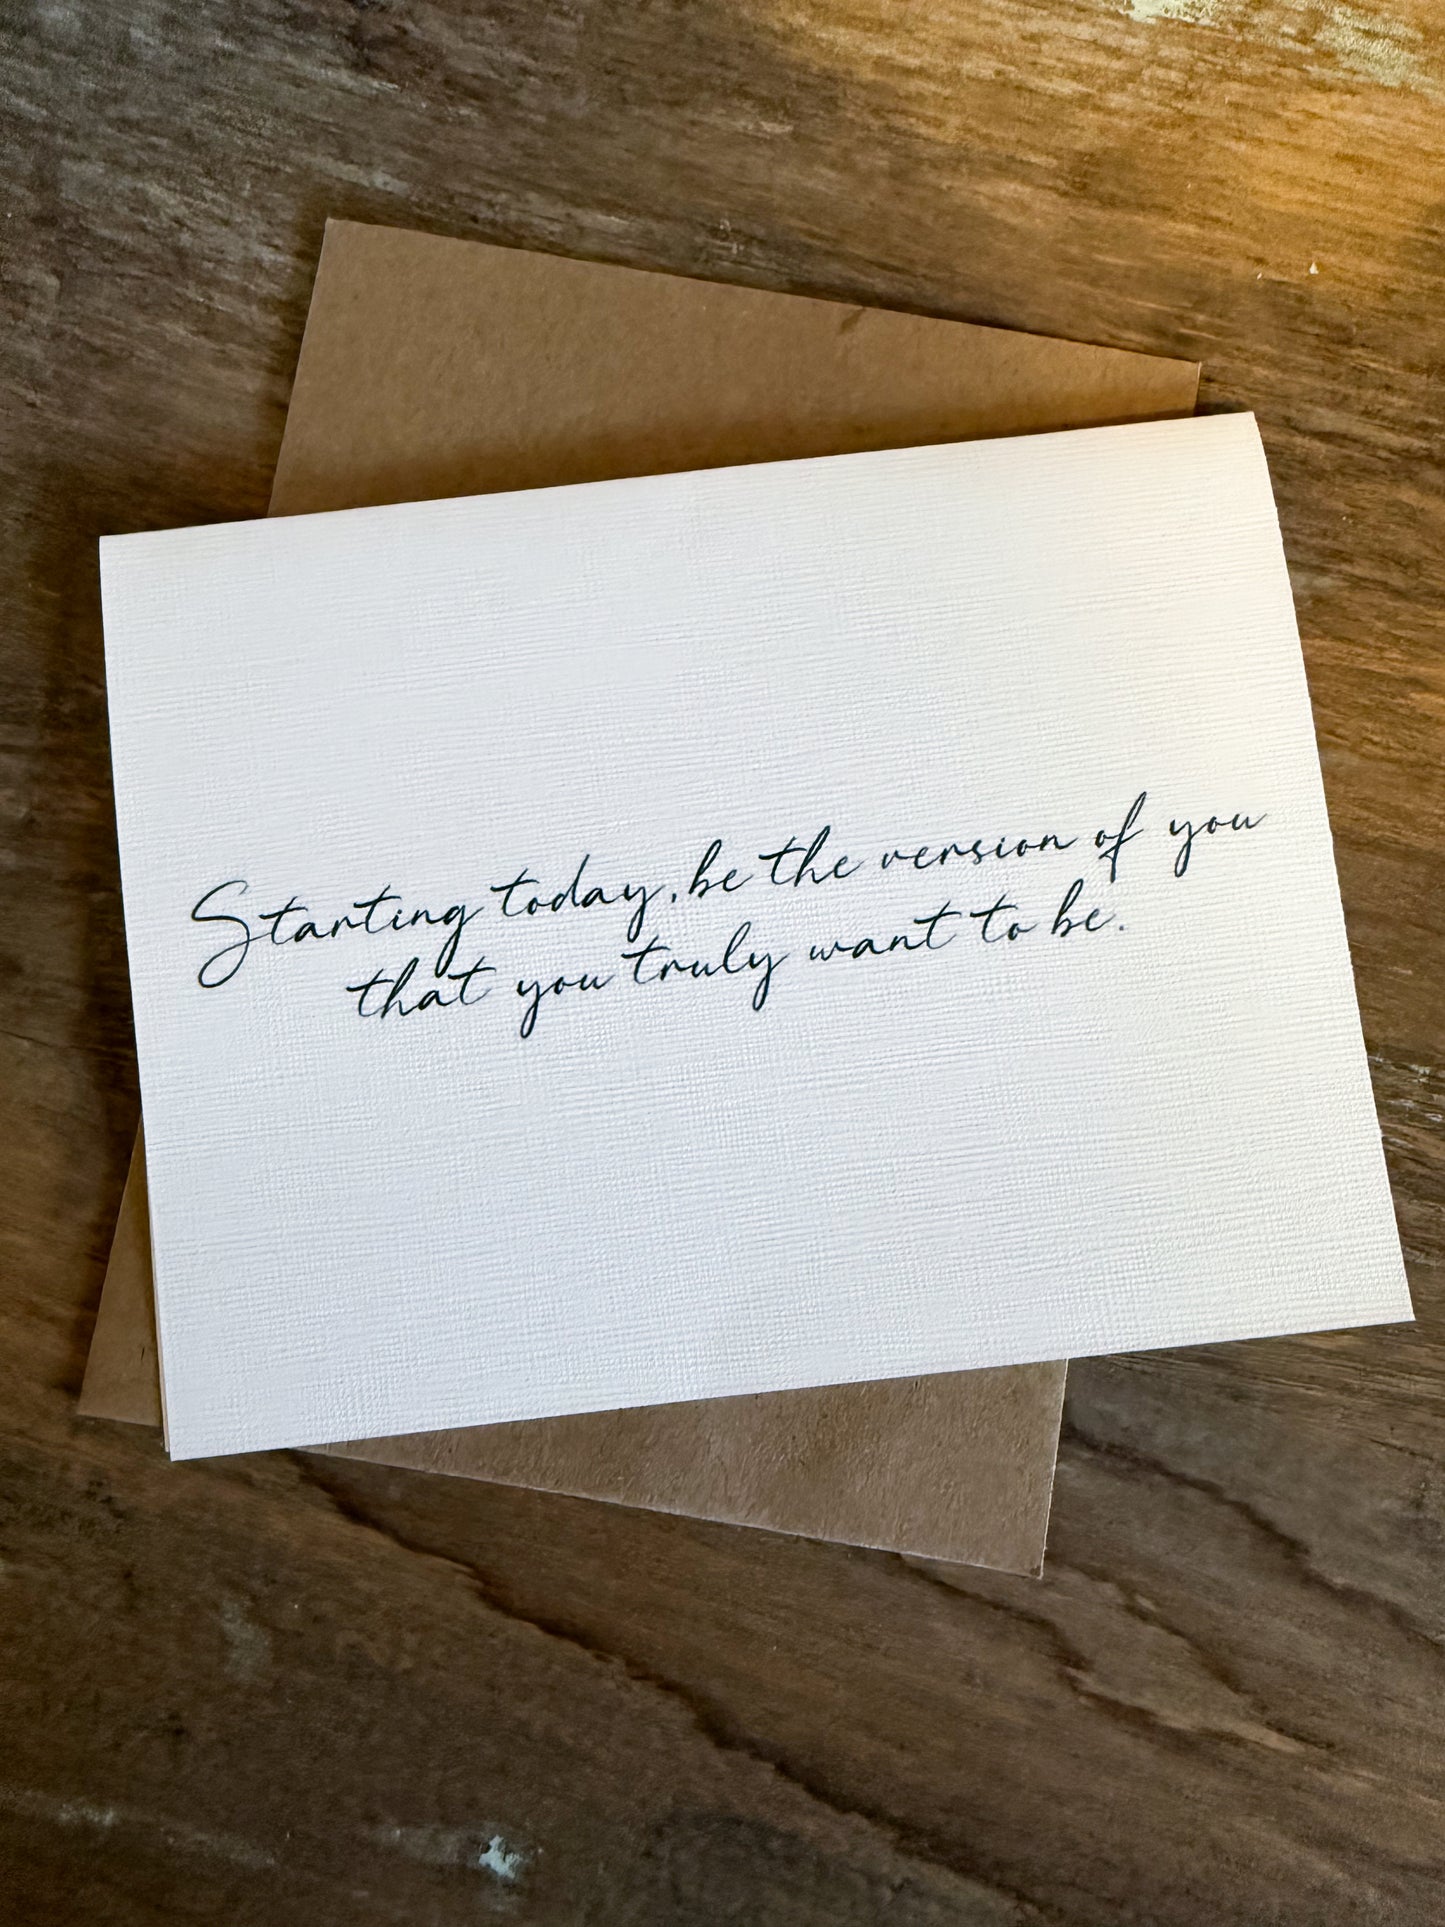 Starting today, be the version of you
that you truly want to be.